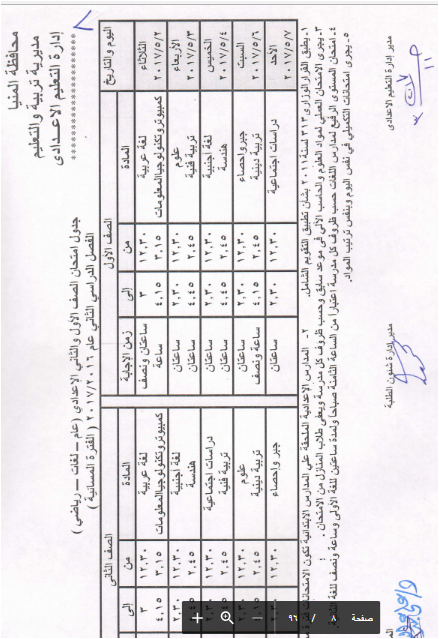 محافظة المنيا
مديرية تربية والتعليم
إدارة التعليم الاعدادى
********************
٨
جدول امتحان الصف الأول والثاني الاعدادى (عام – لغات – رياضي)
الفصل الدراسي الثاني عام ٢٠١٧/٢٠١٦ ( الفترة المسائية )
اليوم والتاريخ الصف الأول الصف الثاني
المادة من إلى زمن الاجابة المادة من إلى
الثلاثاء ٢٠١٧/٥/٢ لغة عربية ١٢.٣٠ ٣ ساعتان ونصف لغة عربية ١٢.٣٠ ٣
كمبيوتر وتكنولوجيا المعلومات ٣.١٥ ٤.١٥ ساعة كمبيوتر وتكنولوجيا المعلومات ٣.١٥ ٤.١٥
الأربعاء ٢٠١٧/٥/٣ علوم ١٢.٣٠ ٢.٣٠ ساعتان لغة أجنبية ١٢.٣٠ ٢.٣٠
تربية فنية ٢.٤٥ ٤.٤٥ ساعتان هندسة ٢.٤٥
الخميس ٢٠١٧/٥/٤ لغة أجنبية ١٢.٣٠ ٢.٣٠ ساعتان دراسات اجتماعية ١٢.٣٠
هندسة ٢.٤٥ ٤.٤٥ ساعتان تربية فنية ٢.٤٥
السبت ٢٠١٧/٥/٦ جبر واحصاء ١٢.٣٠ ٢.٣٠ ساعتان علوم ١٢.٣٠
تربية دينية ٢.٤٥ ٤.١٥ ساعة ونصف تربية دينية ٢.٤٥
الأحد ٢٠١٧/٥/٧ دراسات اجتماعية ١٢.٣٠ ٢.٣٠ ساعتان جبر واحصاء ١٢.٣٠
١. يطبق القرار الوزارى ٣١٣ لسنة ٢٠١١ بشأن تطبيق التقويم الشامل. ٢- المدارس الاعدادية الملحقة على المدارس الابتدائية تكون الامتحانات
٣. يجرى الامتحان العملى لمواد العلوم والحاسب الآلى فى موعد سابق وحسب ظروف كل مدرسة ويعفى طلاب المنازل من الامتحان.
٤. امتحان المستوى الرفيع لمدارس اللغات حسب ظروف كل مدرسة اعتبارا من الساعة الثامنة صباحا ولمدة ساعتين للغة الأولى وساعة ونصف للغة
٥. يجرى امتحانات التكميلى فى نفس اليوم وبنفس ترتيب المواد.
مدير إدارة التعليم الاعدادى مدير إدارة شئون الطلبة
صفحة ٩٦ /